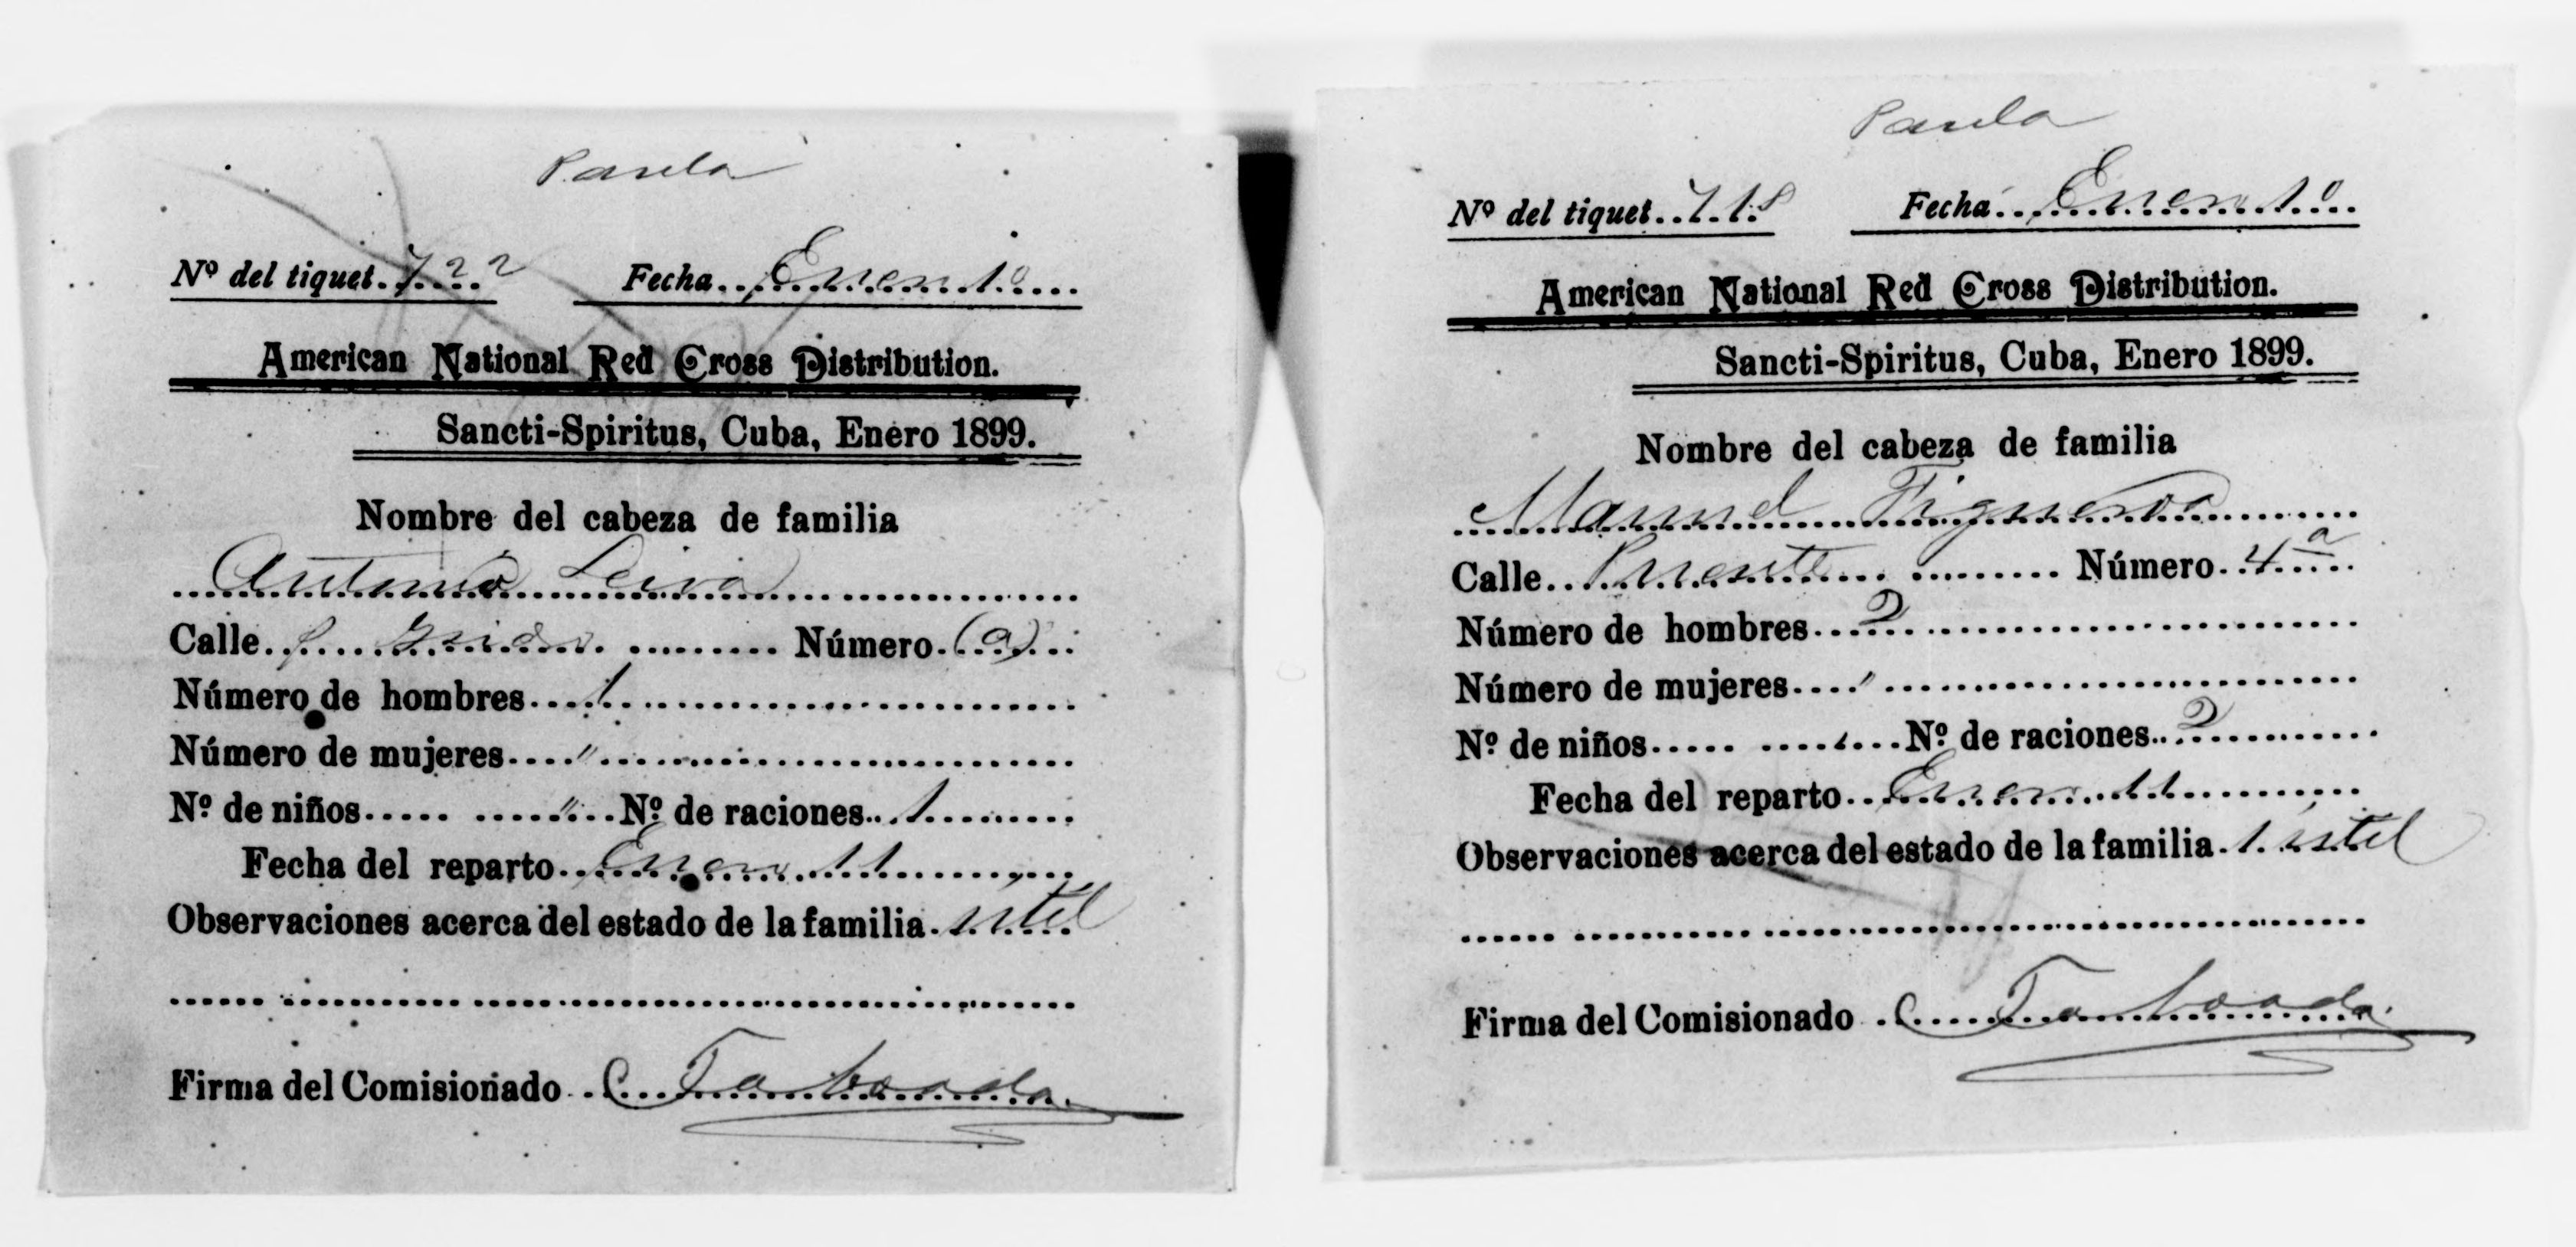 Paula
Nº del tiquet 722 Fecha Enero 1º
American National Red Cross Distribution.
Sancti-Spiritus, Cuba, Enero 1899.
Nombre del cabeza de familia
Antonio Leiva
Calle Número (a)
Número de hombres 1
Número de mujeres "
Nº de niños " Nº de raciones 1
Fecha del reparto Enero 11
Observaciones acerca del estado de la familia. util
Firma del Comisionado C Taboada
Paula
Nº del tiquet 718 Fecha Enero 1º
American National Red Cross Distribution.
Sancti-Spiritus, Cuba, Enero 1899.
Nombre del cabeza de familia
Manuel Figueroa
Calle Puente Número 4ª
Número de hombres 2
Número de mujeres "
Nº de niños Nº de raciones 2
Fecha del reparto Enero 11
Observaciones acerca del estado de la familia. 1 util
Firma del Comisionado C Taboada